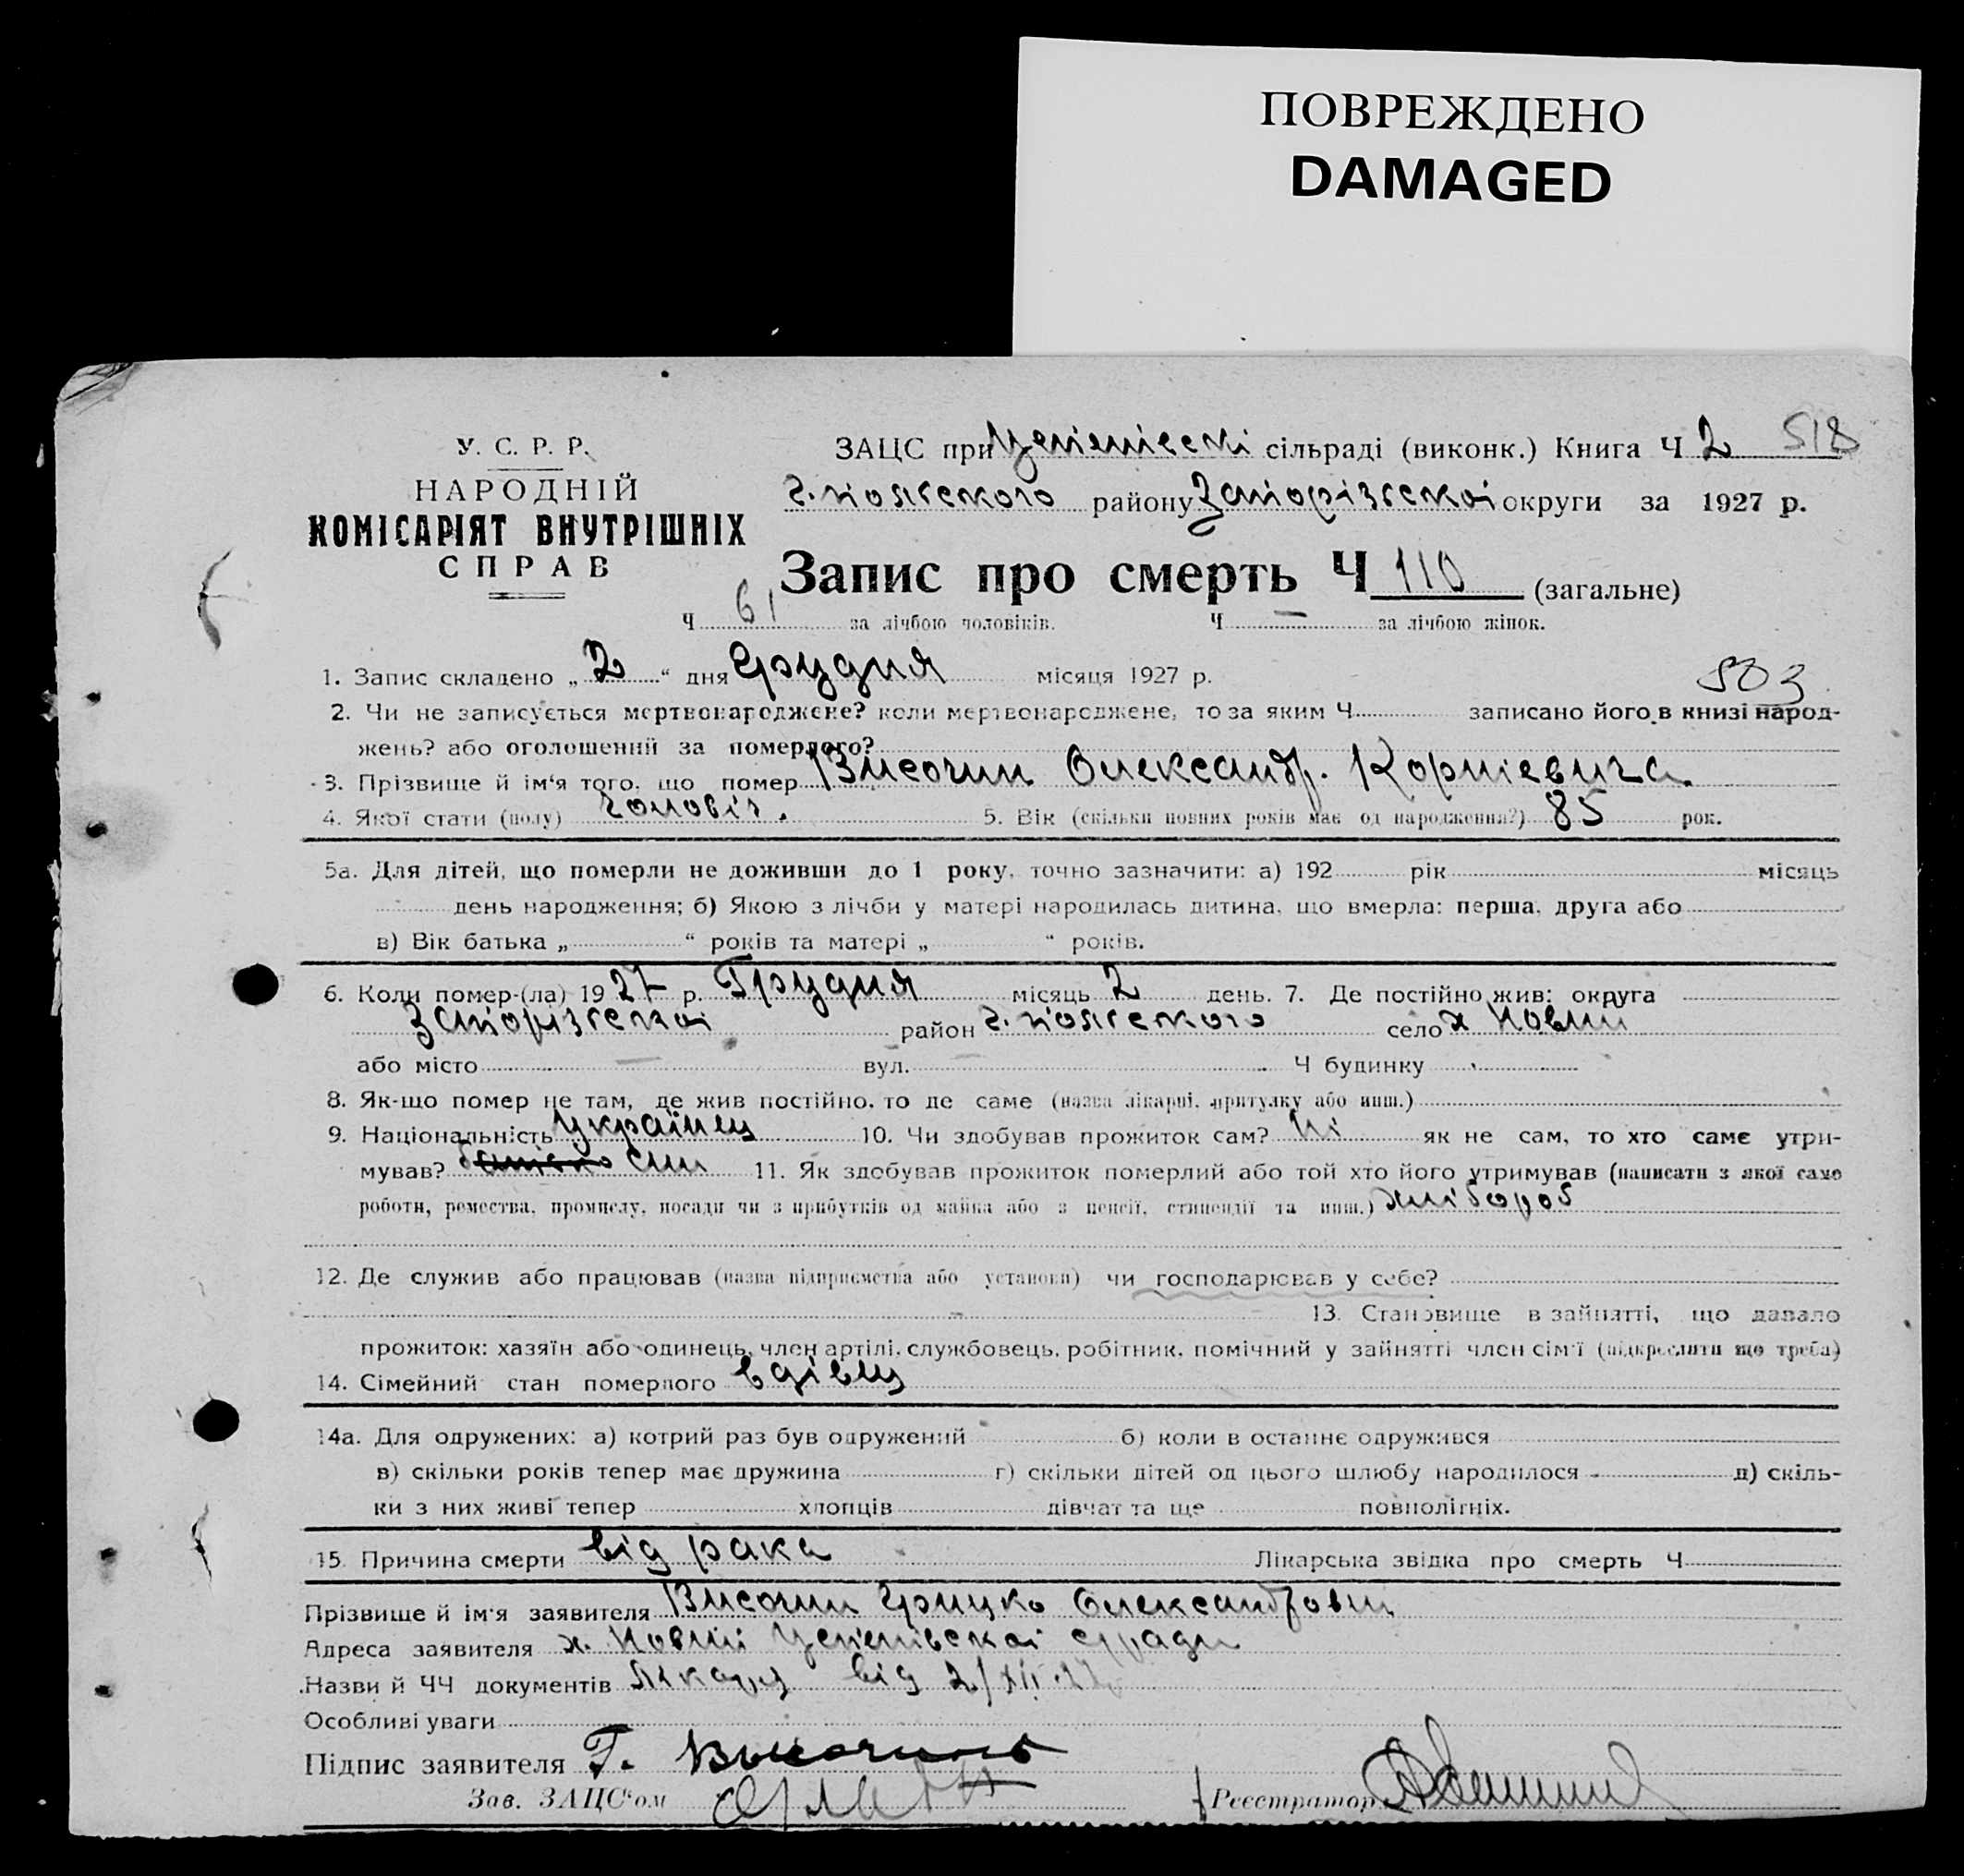 ПОВРЕЖДЕНО
DAMAGED
У. С. Р. Р.
НАРОДНІЙ
КОМІСАРІЯТ ВНУТРІШНІХ
СПРАВ
ЗАЦС при сільраді (виконк.) Книга Ч 2 518
району Запорізської округи за 1927 р.
Запис про смерть Ч 110 (загальне)
Ч 61 за лічбою чоловіків. Ч — за лічбою жінок.
1. Запис складено „ 2 “ дня Грудня місяця 1927 р.
503
2. Чи не записується мертвонароджене? коли мертвонароджене, то за яким Ч записано його в книзі народ-
жень? або оголошений за померлого?
3. Прізвище й ім'я того, що помер Височин Олександр. Корнієвича
4. Якої стати (полу) чоловіч. 5. Вік (скільки повних років має од народження?) 85 рок.
5а. Для дітей, що померли не доживши до 1 року, точно зазначити: а) 192 рік місяць
день народження; б) Якою з лічби у матері народилась дитина, що вмерла: перша, друга або
в) Вік батька „ “ років та матері „ “ років.
6. Коли помер-(ла) 19 27 р. Грудня місяць 2 день. 7. Де постійно жив: округа
Запорізської район село х Новий
або місто — вул. — Ч будинку
8. Як-що помер не там, де жив постійно, то де саме (назва лікарні, притулку або инш.)
9. Національність Українец 10. Чи здобував прожиток сам? Ні як не сам, то хто саме утри-
мував? син 11. Як здобував прожиток померлий або той хто його утримував (написати з якої саме
роботи, ремества, промислу, посади чи з прибутків од майна або з пенсії, стипендії та инш.) хлібороб
12. Де служив або працював (назва підприємства або установи) чи господарював у себе?
13. Становище в зайнятті, що давало
прожиток: хазяїн або одинець, член артілі, службовець, робітник, помічний у зайнятті член сім'ї (підкреслити що треба)
14. Сімейний стан померлого вдівец
14а. Для одружених: а) котрий раз був одружений б) коли в останнє одружився
в) скільки років тепер має дружина г) скільки дітей од цього шлюбу народилося д) скіль-
ки з них живі тепер хлопців дівчат та ще повнолітніх.
15. Причина смерти від рака Лікарська звідка про смерть Ч
Прізвище й ім'я заявителя Височин Грицко Олександрови
Адреса заявителя х. Новий с/ради
Назви й ЧЧ документів Лікару від 2/XII-27
Особливі уваги
Підпис заявителя Г. Высочинъ
Зав. ЗАЦС'ом
Реєстратор